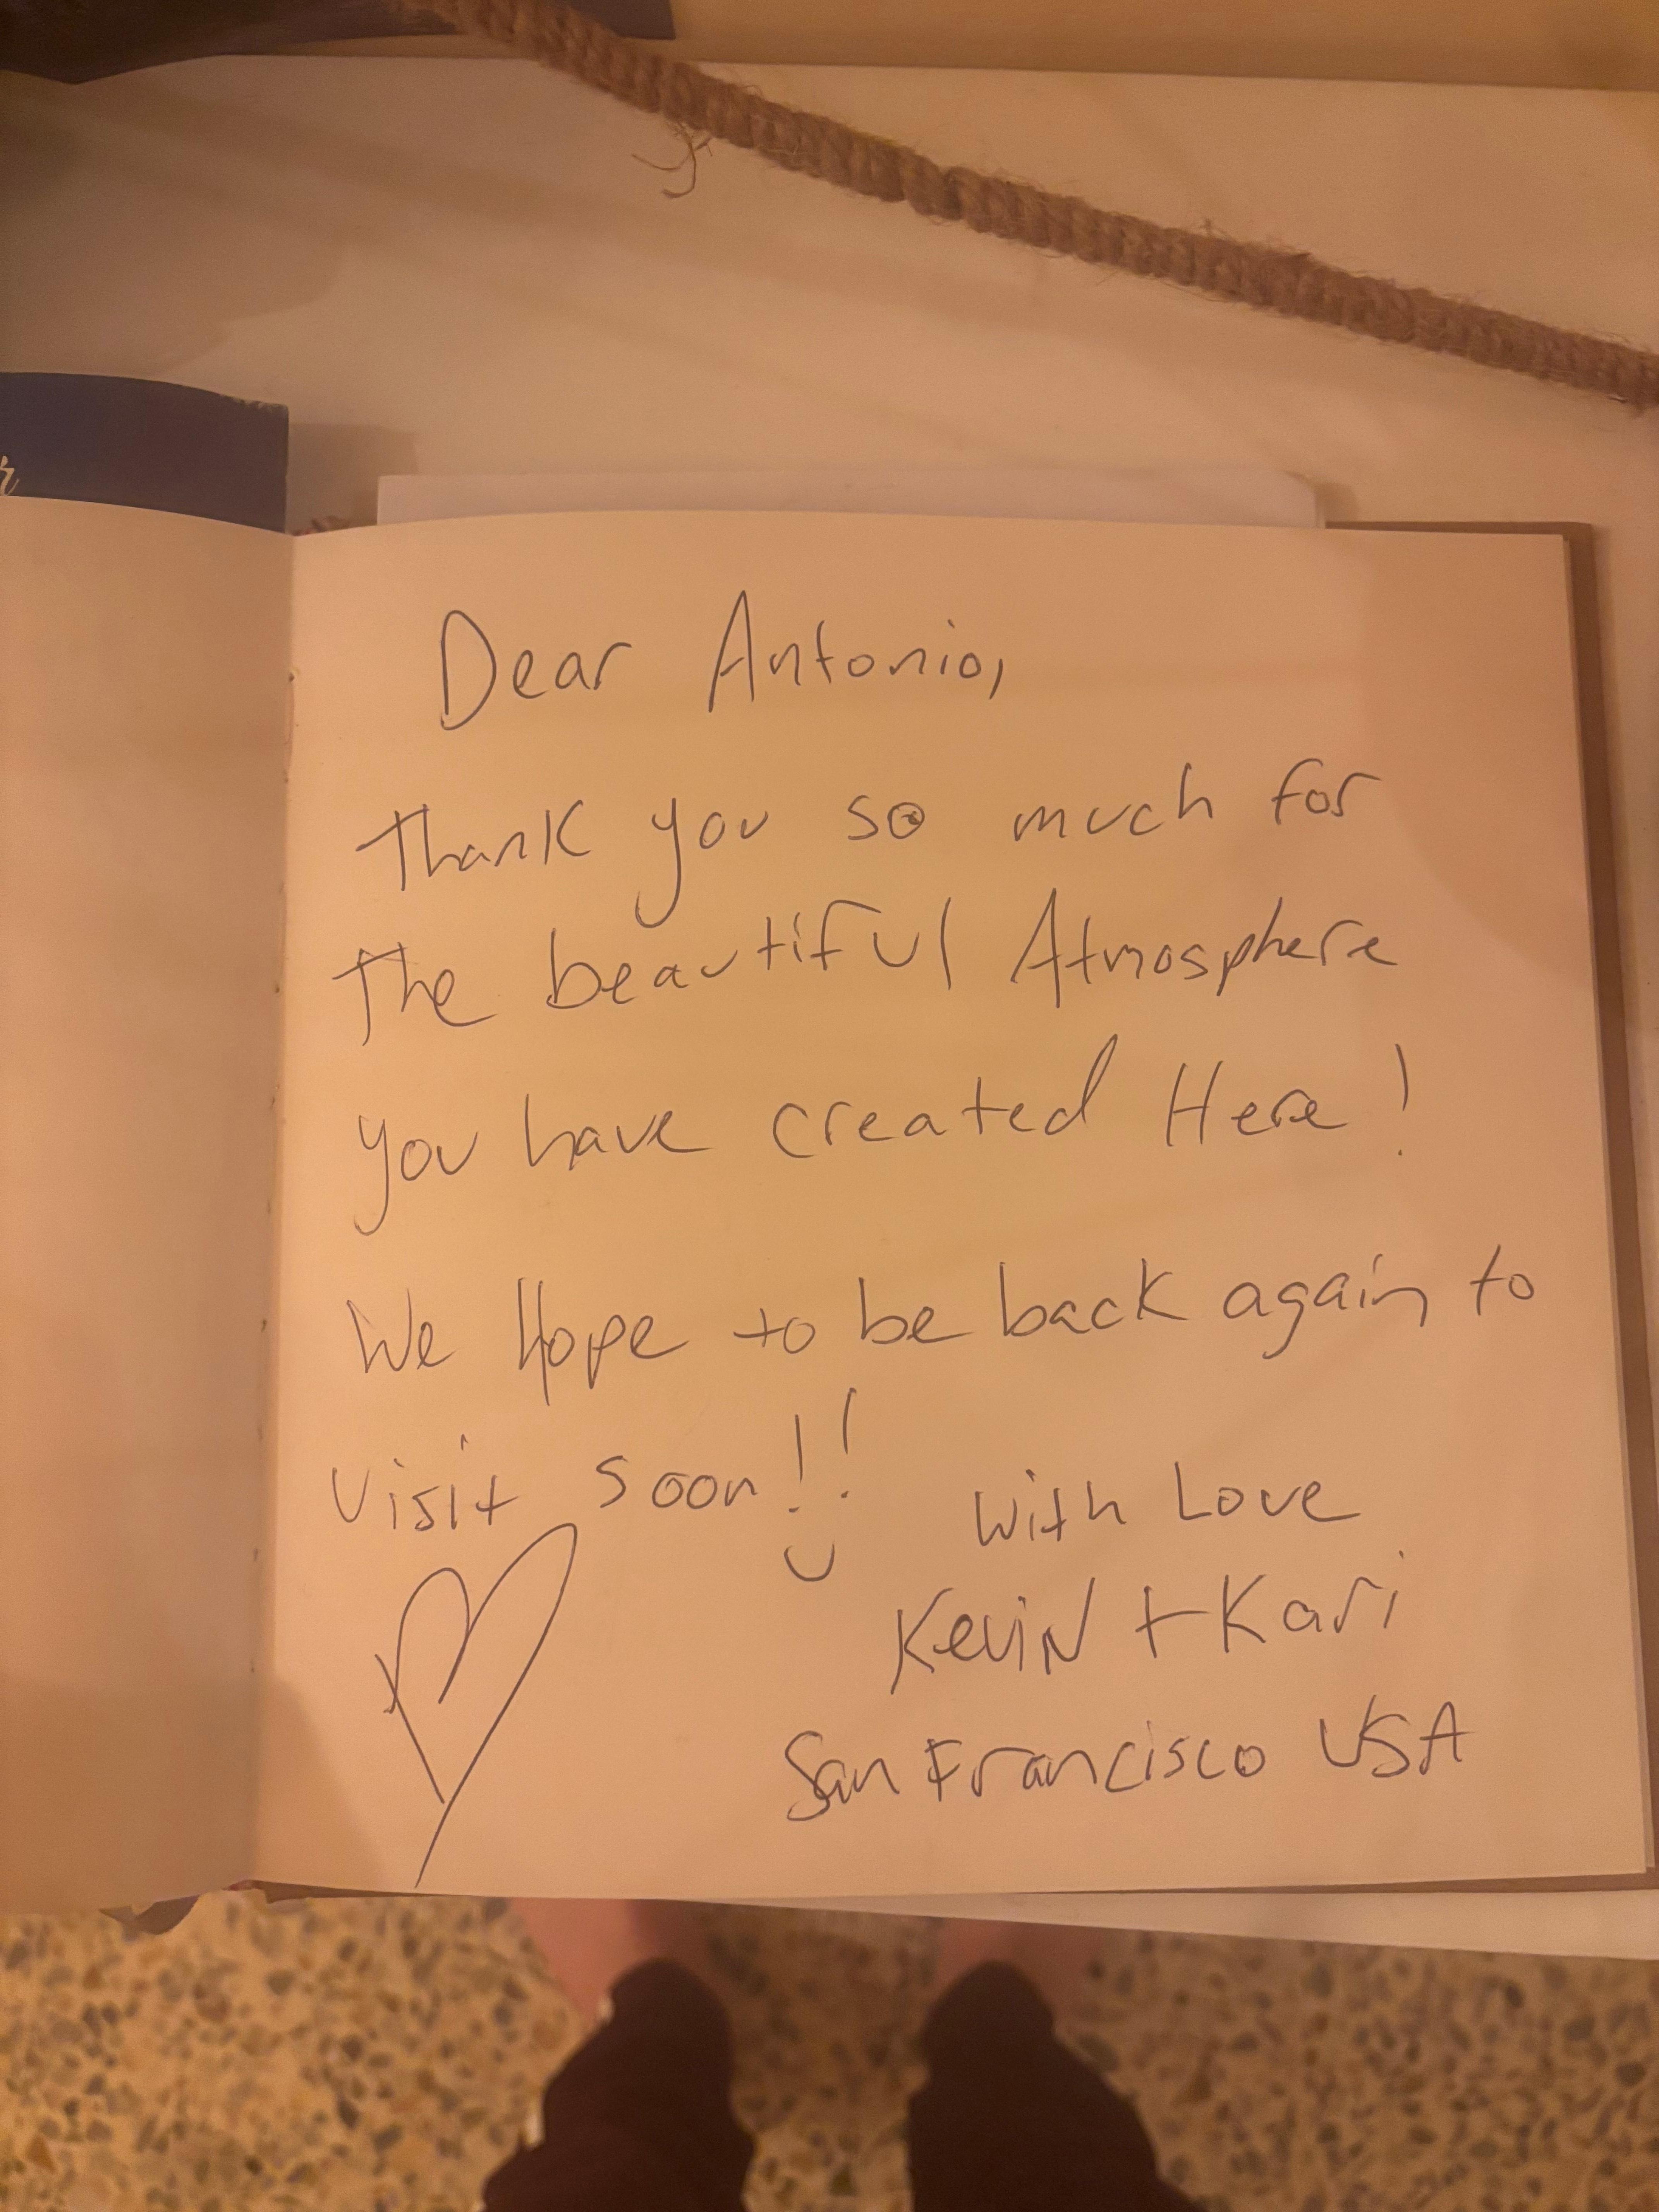 Dear Antonio,
Thank you so much for
the beautiful Atmosphere
you have created Here!
We Hope to be back again to
visit soon!!
With Love
Kevin + Kari
San Francisco USA